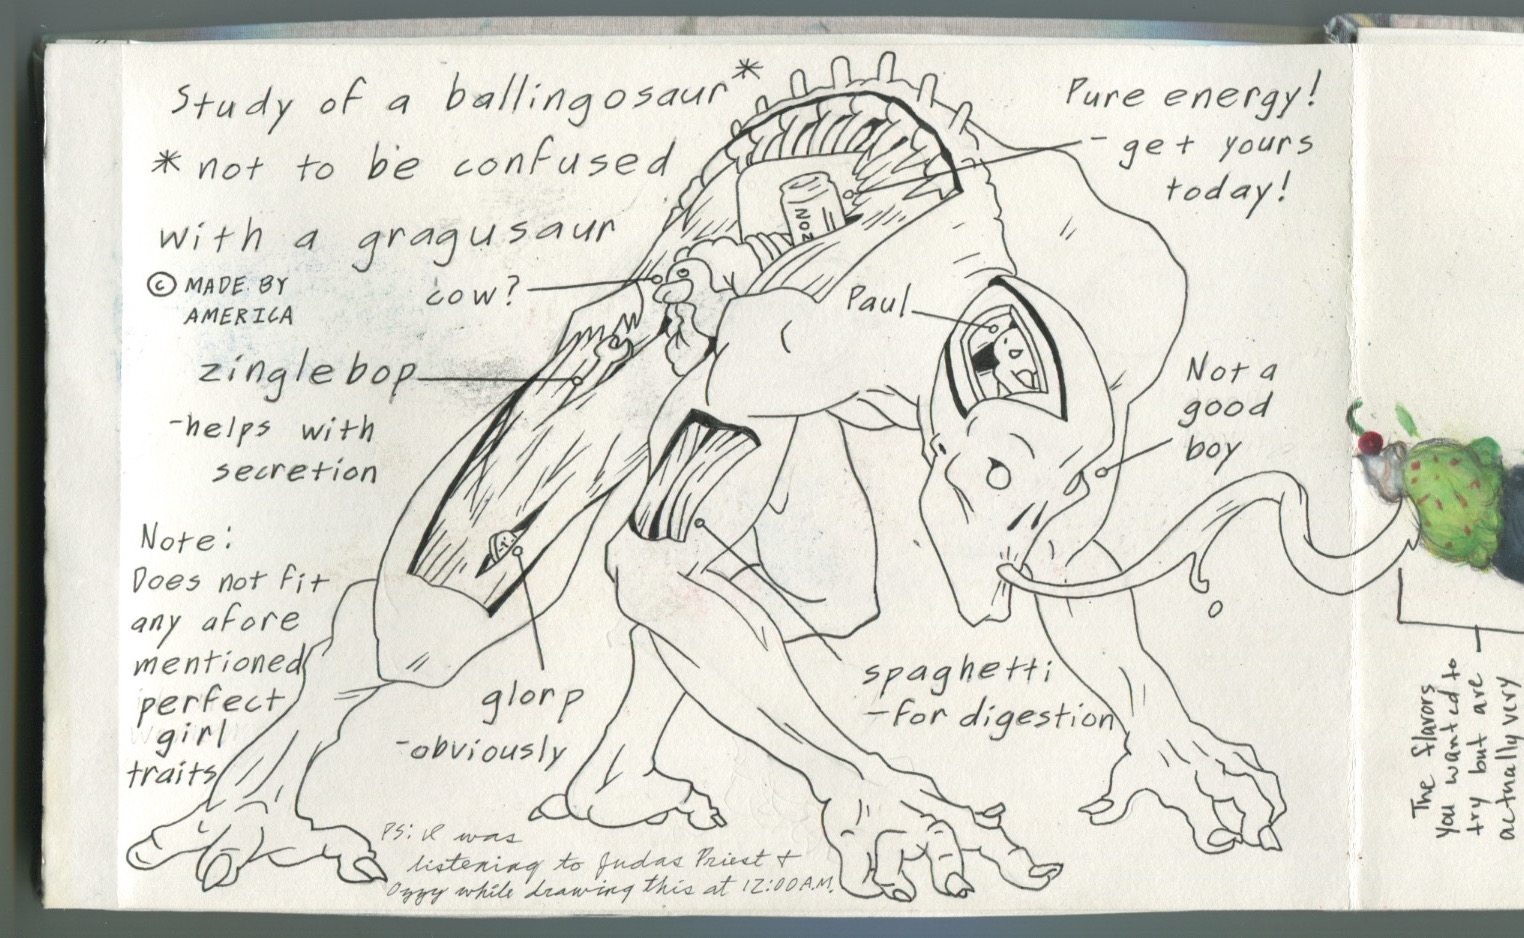 Study of a ballingosaur*
*not to be confused
with a gragusaur
© MADE BY
AMERICA
cow?
zinglebop
-helps with
secretion
Note:
Does not fit
any afore
mentioned
perfect
girl
traits
glorp
-obviously
PS: I was
listening to Judas Priest +
Ozzy while drawing this at 12:00 A.M.
Pure energy!
- get yours
today!
NOZ
Paul
Not a
good
boy
spaghetti
-for digestion
The flavors
you wanted to
try but are
actually very